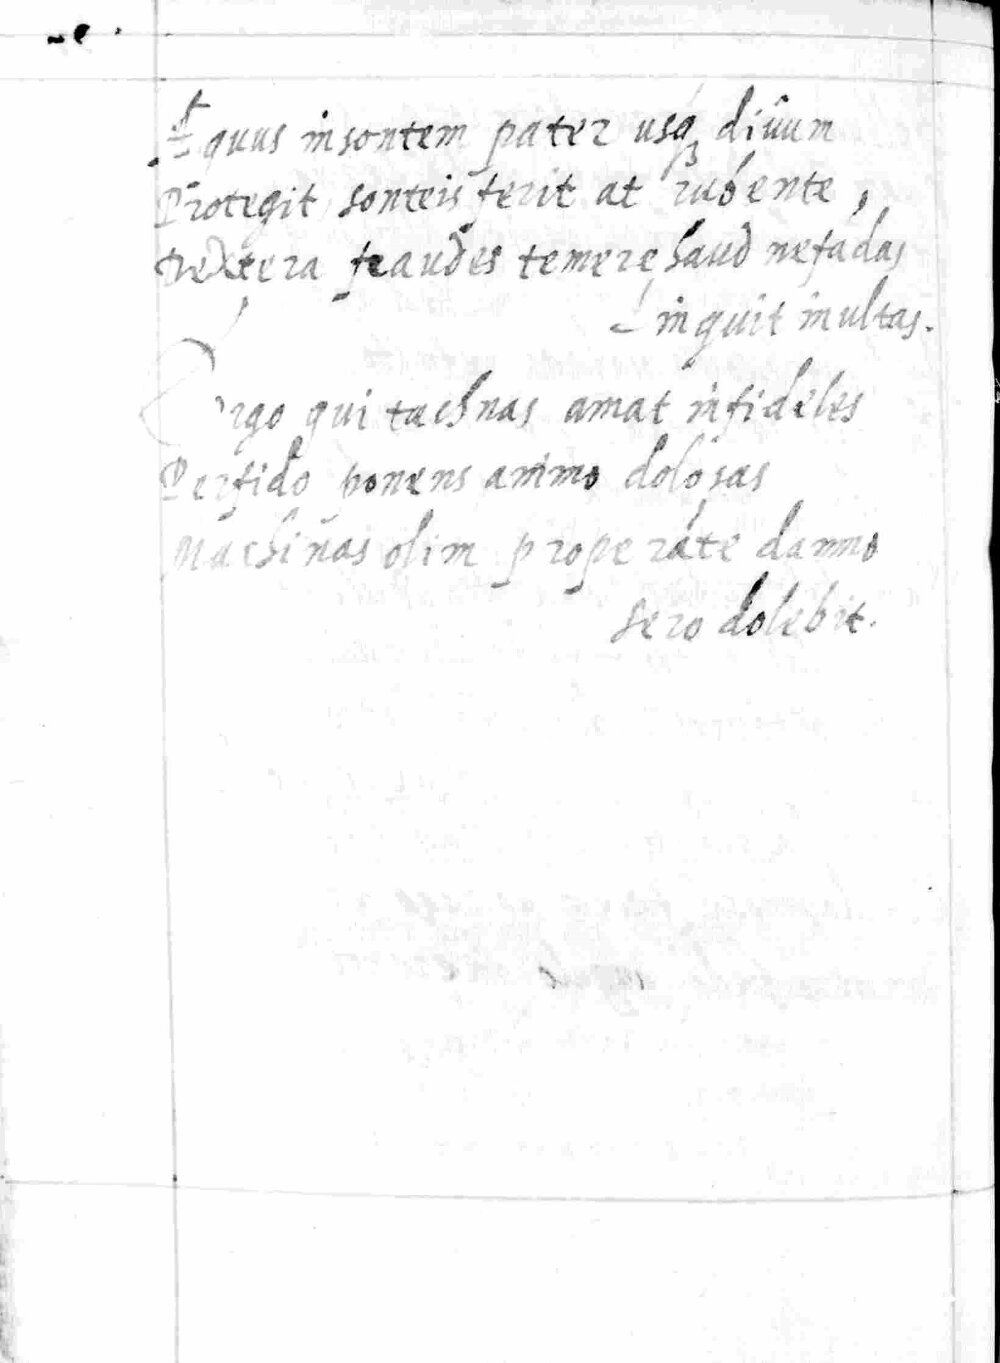 Æquus insontem pater usq₃ divûm
Protegit sonteis ferit at rubente,
Dextera fraudes temere haud nefadas
Linquit inultas.
Ergo qui technas amat infideles
Perfido ponens animo dolosas
Machinas olim properáte damno
Sero dolebit.